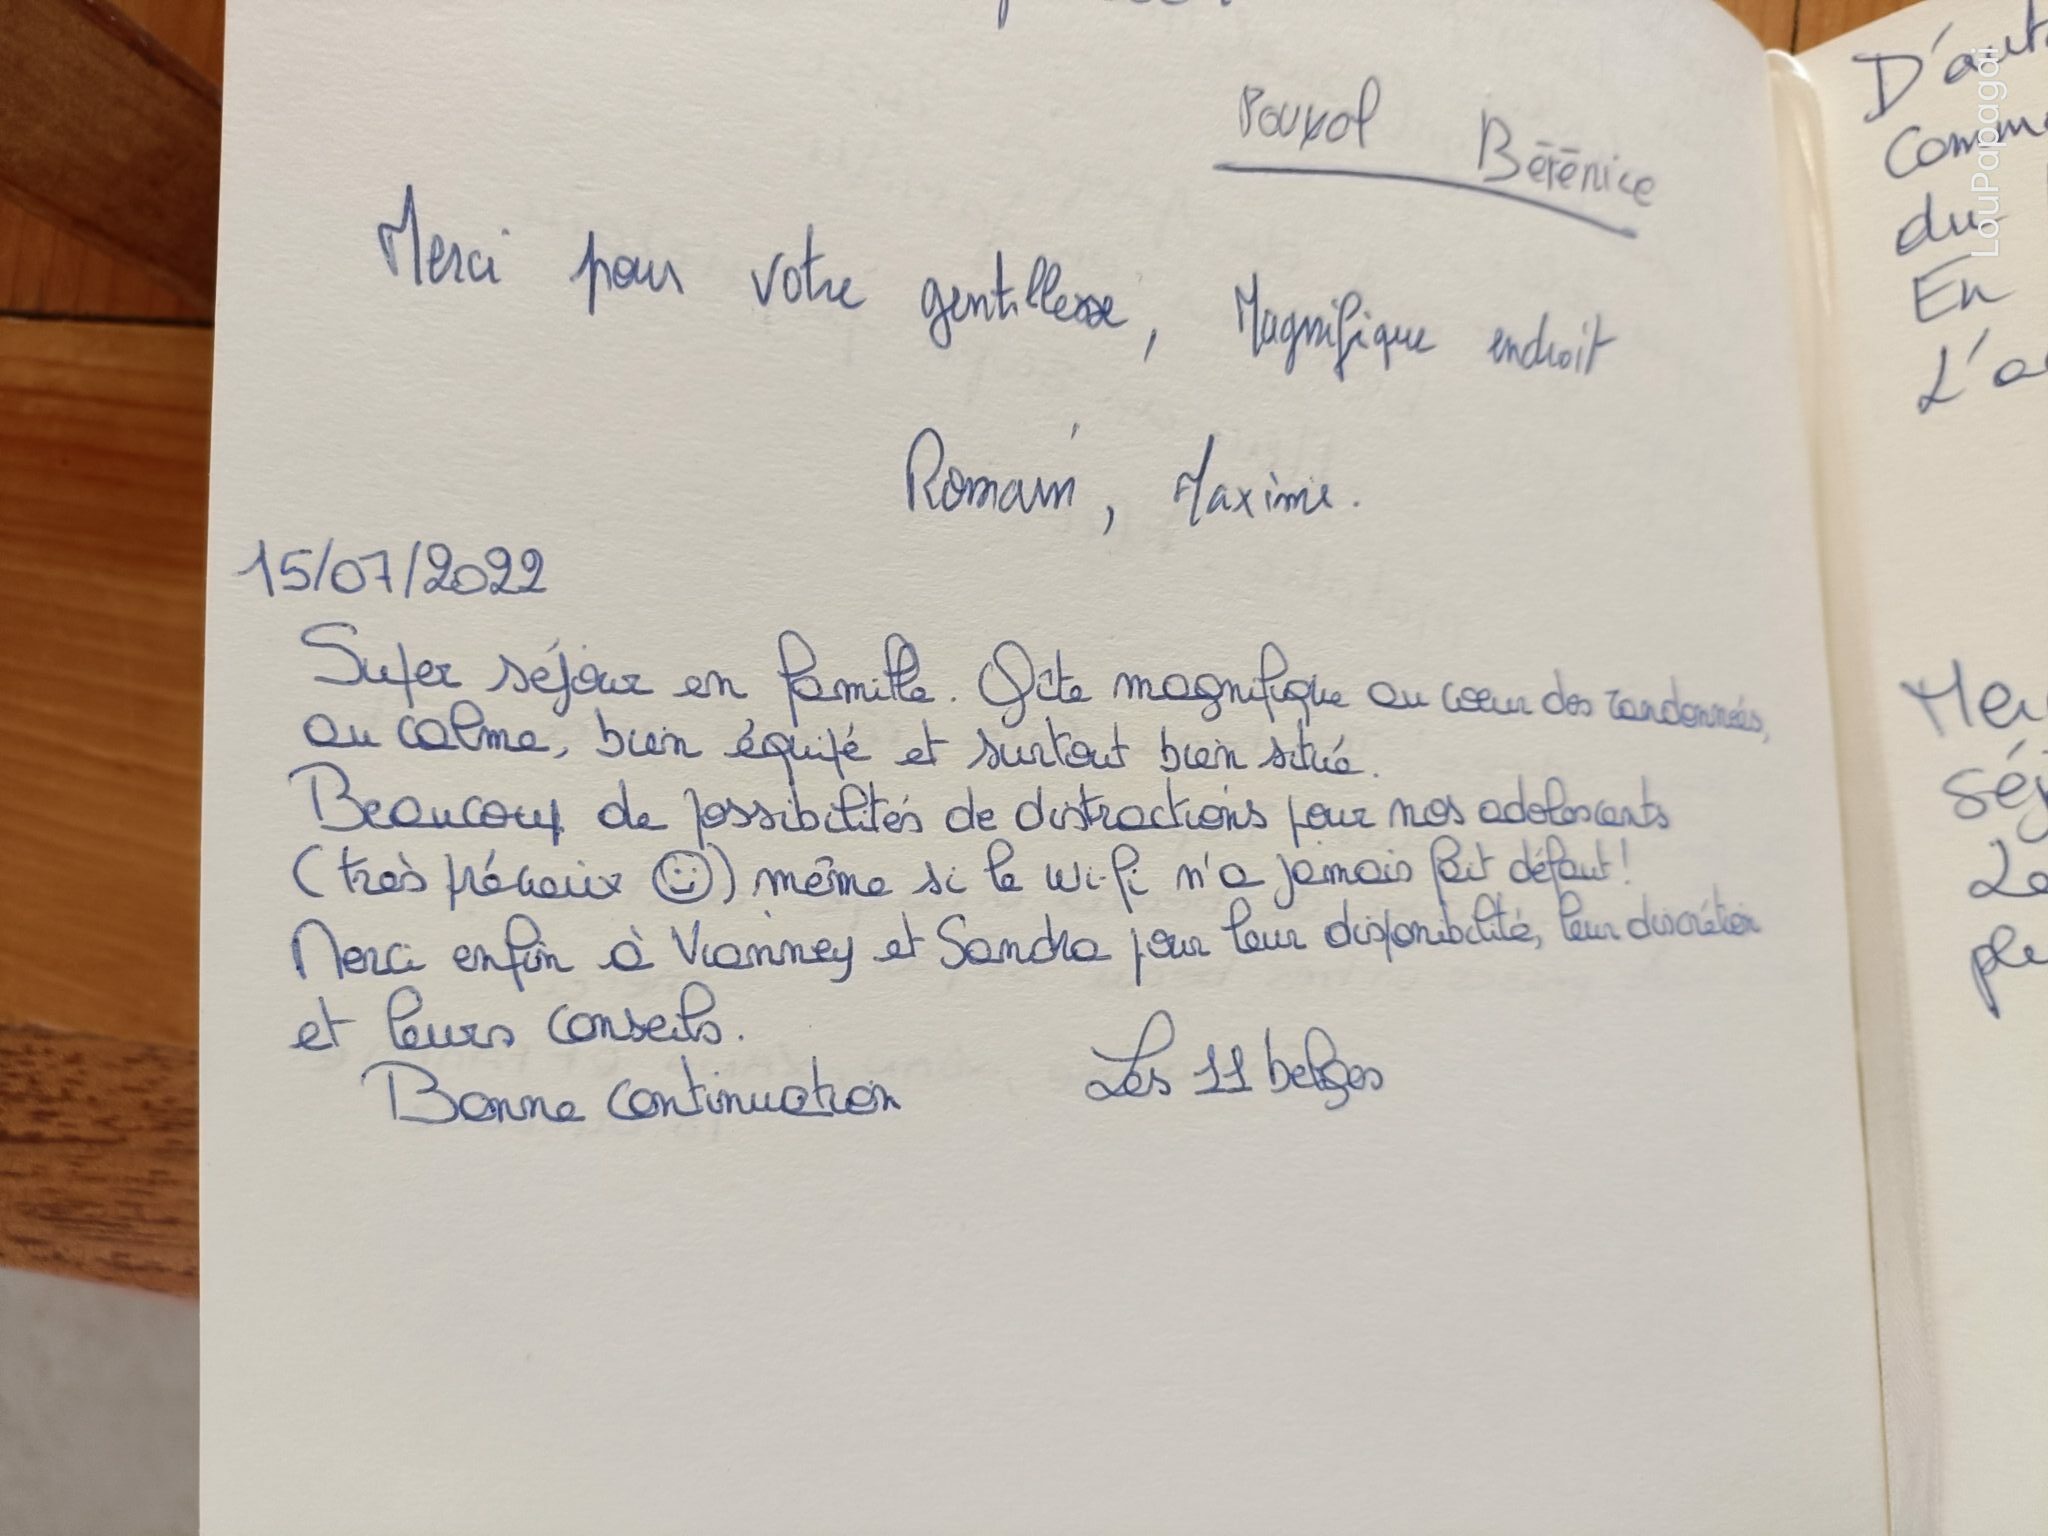 Pouxol Bérénice
Merci pour votre gentillesse, Magnifique endroit
Romain, Maxime.
15/07/2022
Super séjour en famille. Gîte magnifique au coeur des randonnées,
au calme, bien équipé et surtout bien situé.
Beaucoup de possibilités de distractions pour nos adolescents
(très précieux ☺) même si le wi-fi n'a jamais fait défaut!
Merci enfin à Vianney et Sandra pour leur disponibilité, leur discrétion
et leurs conseils.
Bonne continuation Les 11 belges
D'aut
comm
du
En
L'a
Mer
séj
Le
ple
LouPapagai